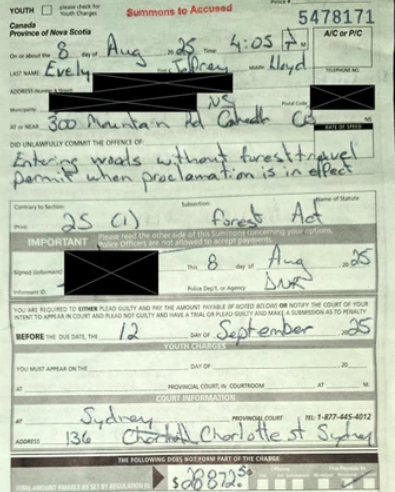 YOUTH please check for Youth Charges
Summons to Accused
5478171
Canada
Province of Nova Scotia
A/C or P/C
On or about the 8 day of Aug 20 25 Time 4:05 P M
LAST NAME: Evely Jeffrey Lloyd
TELEPHONE NO.
ADDRESS
Municipality NS Postal Code
AT or NEAR 300 Mountain Rd CB NS
RATE OF SPEED
DID UNLAWFULLY COMMIT THE OFFENCE OF:
Entering woods without forest travel
permit when proclamation is in effect
Contrary to Section: Subsection: Name of Statute
25 (1) Forest Act
IMPORTANT Please read the other side of this Summons concerning your options.
Police Officers are not allowed to accept payments.
Signed (Informant) This 8 day of Aug 20 25
Informant ID: Police Dep't. or Agency DNR
YOU ARE REQUIRED TO EITHER PLEAD GUILTY AND PAY THE AMOUNT PAYABLE (IF NOTED BELOW) OR NOTIFY THE COURT OF YOUR
INTENT TO APPEAR IN COURT AND PLEAD NOT GUILTY AND HAVE A TRIAL OR PLEAD GUILTY AND MAKE A SUBMISSION AS TO PENALTY
BEFORE THE DUE DATE, THE 12 DAY OF September 20 25
YOUTH CHARGES
YOU MUST APPEAR ON THE DAY OF , 20
AT PROVINCIAL COURT, IN COURTROOM AT M.
COURT INFORMATION
AT Sydney PROVINCIAL COURT TEL: 1-877-445-4012
ADDRESS 136 Charlotte st Sydney
THE FOLLOWING DOES NOT FORM PART OF THE CHARGE
TOTAL AMOUNT PAYABLE AS SET BY REGULATION IS: $28872.50